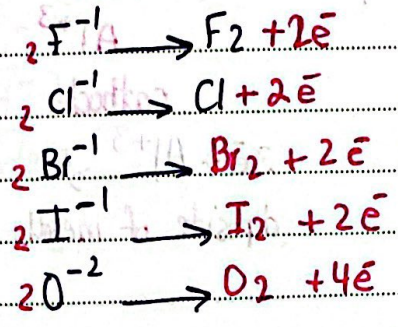 2F⁻¹ → F2 + 2e⁻
2Cl⁻¹ → Cl + 2e⁻
2Br⁻¹ → Br₂ + 2e⁻
2I⁻¹ → I₂ + 2e⁻
2O⁻² → O₂ + 4e⁻